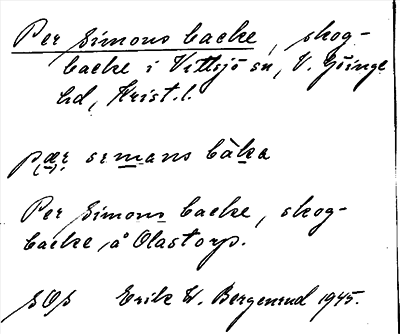 Per Simons backe, skog-
backe i Vittsjö sn, V. Göinge
hd, Krist. l.
pær semans bàka
Per Simons backe, skog-
backe å Olastorp.
SOS Erik W. Bergenrud 1945.